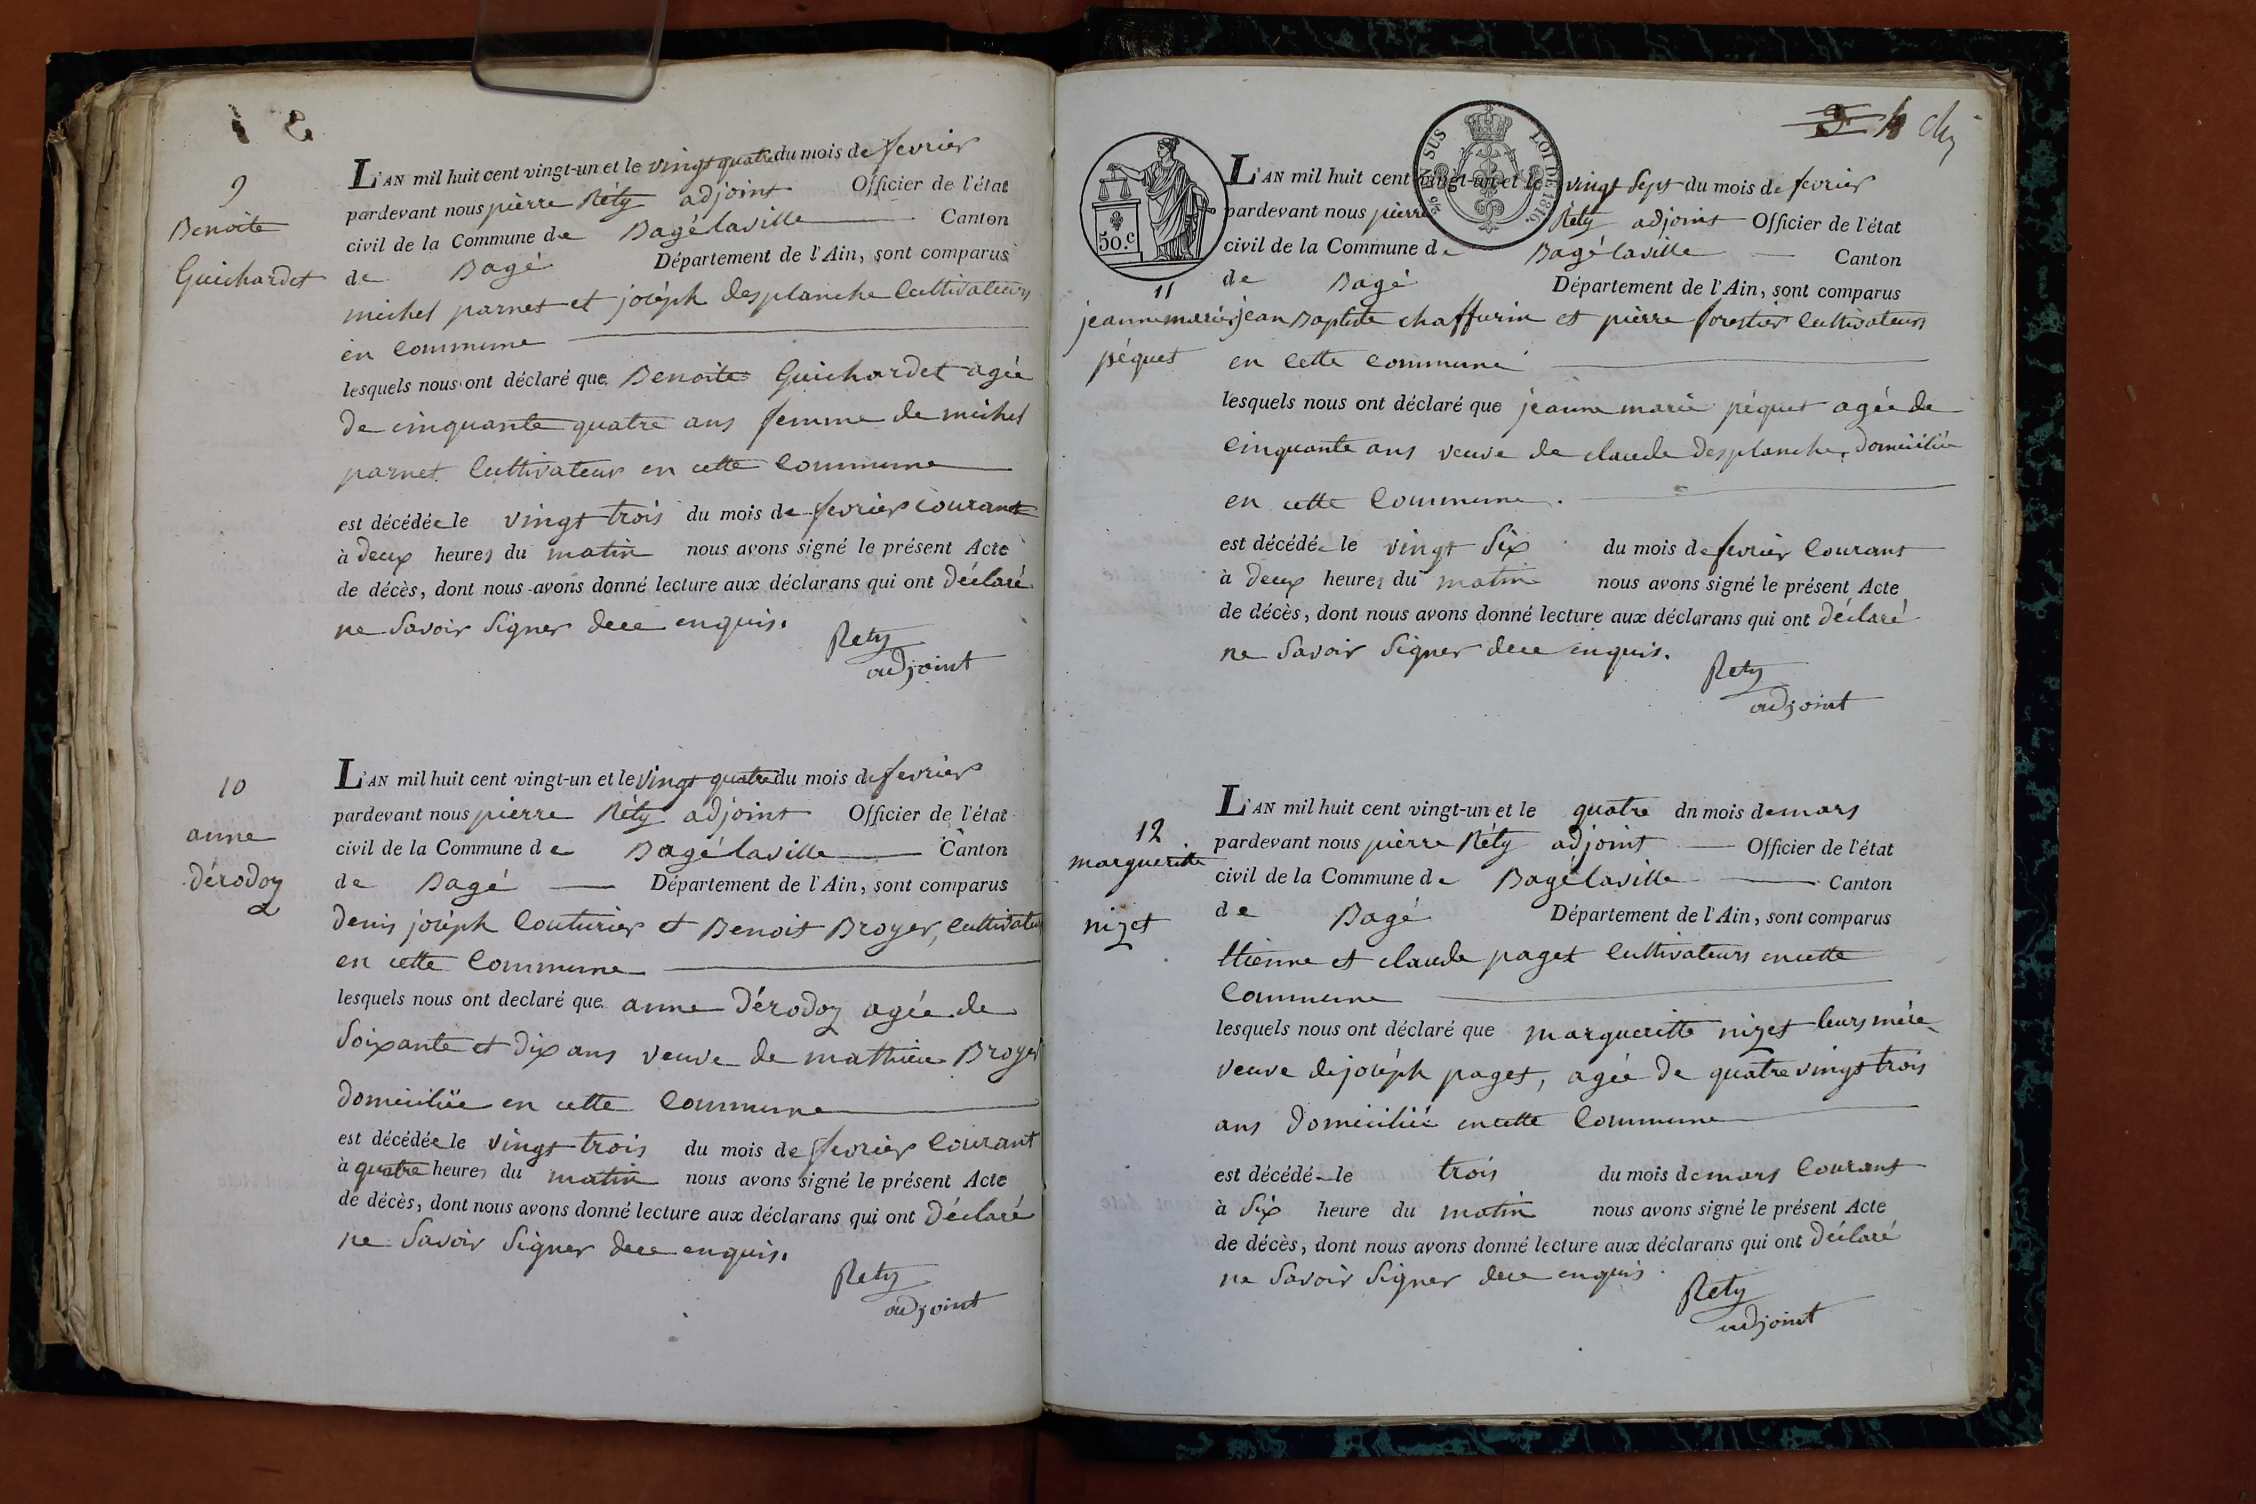 9
Benoite
Guichardet
L'AN mil huit cent vingt-un et le vingt quatre du mois de fevrier
pardevant nous pierre Réty adjoint Officier de l'état
civil de la Commune de Bagélaville Canton
de Bagé Département de l'Ain, sont comparus
michel parnet et joséph desplanche Cultivateurs
en Commune
lesquels nous ont déclaré que Benoite Guichardet agée
de cinquante quatre ans femme de michel
parnet Cultivateur en cette Commune
est décédée le vingt trois du mois de fevrier courant
à deux heures du matin nous avons signé le présent Acte
de décès, dont nous avons donné lecture aux déclarans qui ont déclaré
ne Savoir Signer dece enquis.
Rety
adjoint
10
anne
dérodoz
L'AN mil huit cent vingt-un et le vingt quatre du mois de fevrier
pardevant nous pierre Réty adjoint Officier de l'état
civil de la Commune de Bagélaville Canton
de Bagé Département de l'Ain, sont comparus
denis joséph Couturier et Benoit Broyer, Cultivateu
en cette Commune
lesquels nous ont declaré que anne dérodoz agée de
Soixante et dix ans veuve de mathieu Broyer
domiciliée en cette Commune
est décédée le vingt trois du mois de fevrier Courant
à quatre heures du matin nous avons signé le présent Acte
de décès, dont nous avons donné lecture aux déclarans qui ont déclaré
ne Savoir Signer dece enquis.
Rety
adjoint
4
50.c
EN SUS
LOI DE 1816.
11
jeanne marie
péquet
L'AN mil huit cent vingt-un et le vingt Sept du mois de fevrier
pardevant nous pierre Réty adjoint Officier de l'état
civil de la Commune de Bagélaville Canton
de Bagé Département de l'Ain, sont comparus
jean Baptiste chaffurin et pierre forestier Cultivateurs
en cette Commune
lesquels nous ont déclaré que jeanne marie péquet agée de
Cinquante ans veuve de claude desplanche, domiciliée
en cette Commune.
est décédée le vingt Six du mois de fevrier Courant
à deux heures du matin nous avons signé le présent Acte
de décès, dont nous avons donné lecture aux déclarans qui ont déclaré
ne Savoir Signer dece enquis.
Rety
adjoint
12
margueritte
nizet
L'AN mil huit cent vingt-un et le quatre dn mois de mars
pardevant nous pierre Réty adjoint Officier de l'état
civil de la Commune de Bagélaville Canton
de Bagé Département de l'Ain, sont comparus
Etienne et claude paget Cultivateurs en cette
Commune
lesquels nous ont déclaré que margueritte nizet leurs mére
veuve de joséph paget, agée de quatre vingt trois
ans domiciliée en cette Commune
est décédée le trois du mois de mars Courant
à Six heure du matin nous avons signé le présent Acte
de décès, dont nous avons donné lecture aux déclarans qui ont déclaré
ne Savoir Signer dece enquis
Rety
adjoint